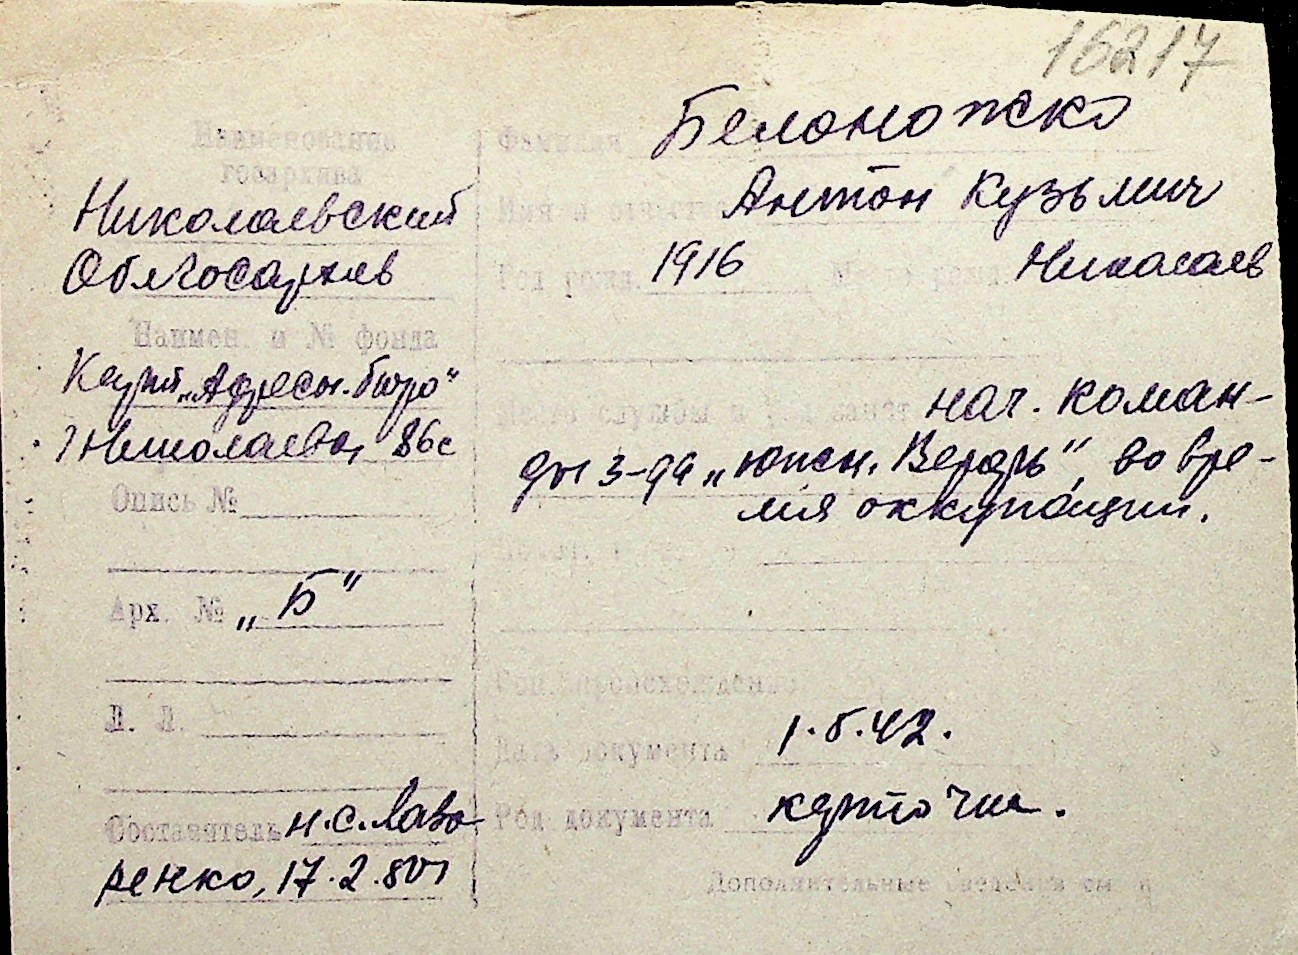 16217
Наименование
госархива
Николаевский
Облгосархив
Наимен. и № фонда
Карт. „Адресн. бюро“
г Николаева, 86с
Опись №
Арх. № „Б“
Л. Л.
Составитель Н.С. Лаво-
ренко, 17.2.80г
Фамилия Белоножко
Имя и отчество Антон Кузьмич
Год рожд. 1916 Место рожд. Николаев
Место службы и занят. нач. коман-
ды з-да „южн. Верфь“, во вре-
мя оккупации.
Соц. происхождение
Дата документа 1.6.42.
Род документа карточка.
Дополнительные сведения см